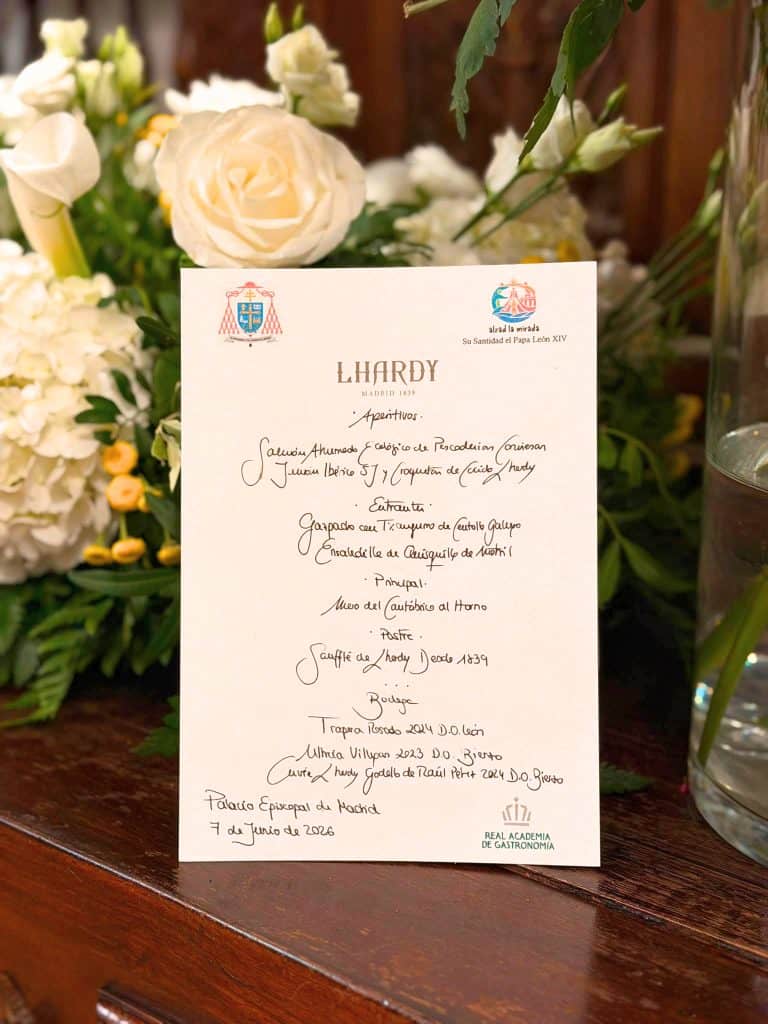 alzad la mirada
Su Santidad el Papa León XIV
LHARDY
MADRID 1839
· Aperitivos ·
Salmón Ahumado Ecológico de Pescaderías Coruñesas
Jamón Ibérico 5J y Croquetas de Cocido Lhardy
· Entrantes ·
Gazpacho con Txangurro de Centollo Gallego
Ensaladilla de Quisquilla de Motril
· Principal ·
Mero del Cantábrico al Horno
· Postre ·
Soufflé de Lhardy Desde 1839
...
Bodega
Trapera Rosado 2024 D.O. León
Ultreia 2023 D.O. Bierzo
Cuvée Lhardy Godello de Raúl Pérez 2024 D.O. Bierzo
Palacio Episcopal de Madrid
7 de Junio de 2026
REAL ACADEMIA
DE GASTRONOMÍA